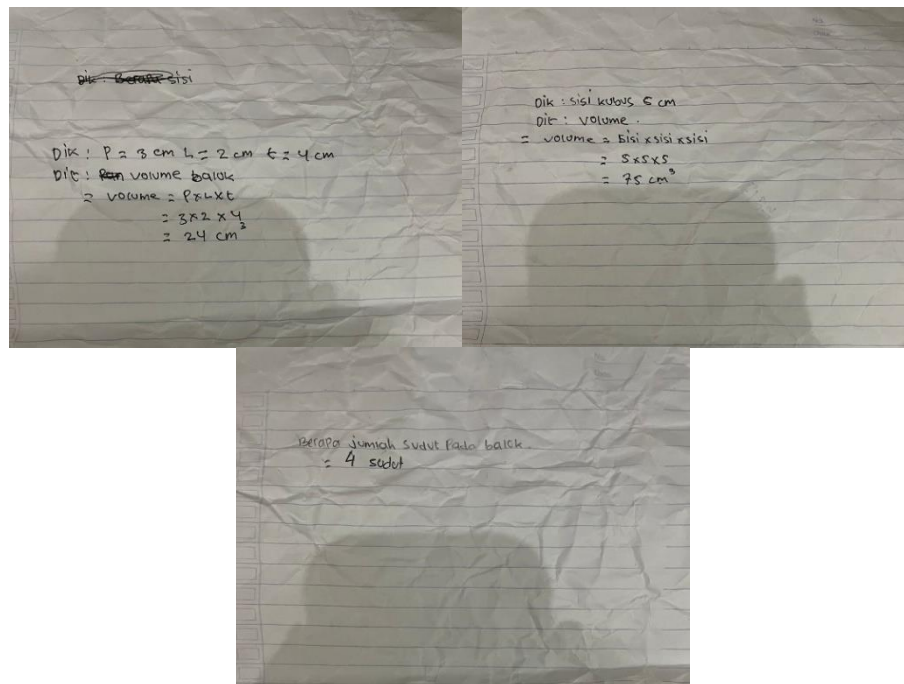 Dik : Berapa sisi
Dik : P = 3 cm L = 2 cm t = 4 cm
Dit : volume balok
= volume = P x L x t
= 3 x 2 x 4
= 24 cm³
Dik : sisi kubus 5 cm
Dit : volume .
= volume = sisi x sisi x sisi
= 5 x 5 x 5
= 75 cm³
Berapa jumlah sudut pada balok.
= 4 sudut